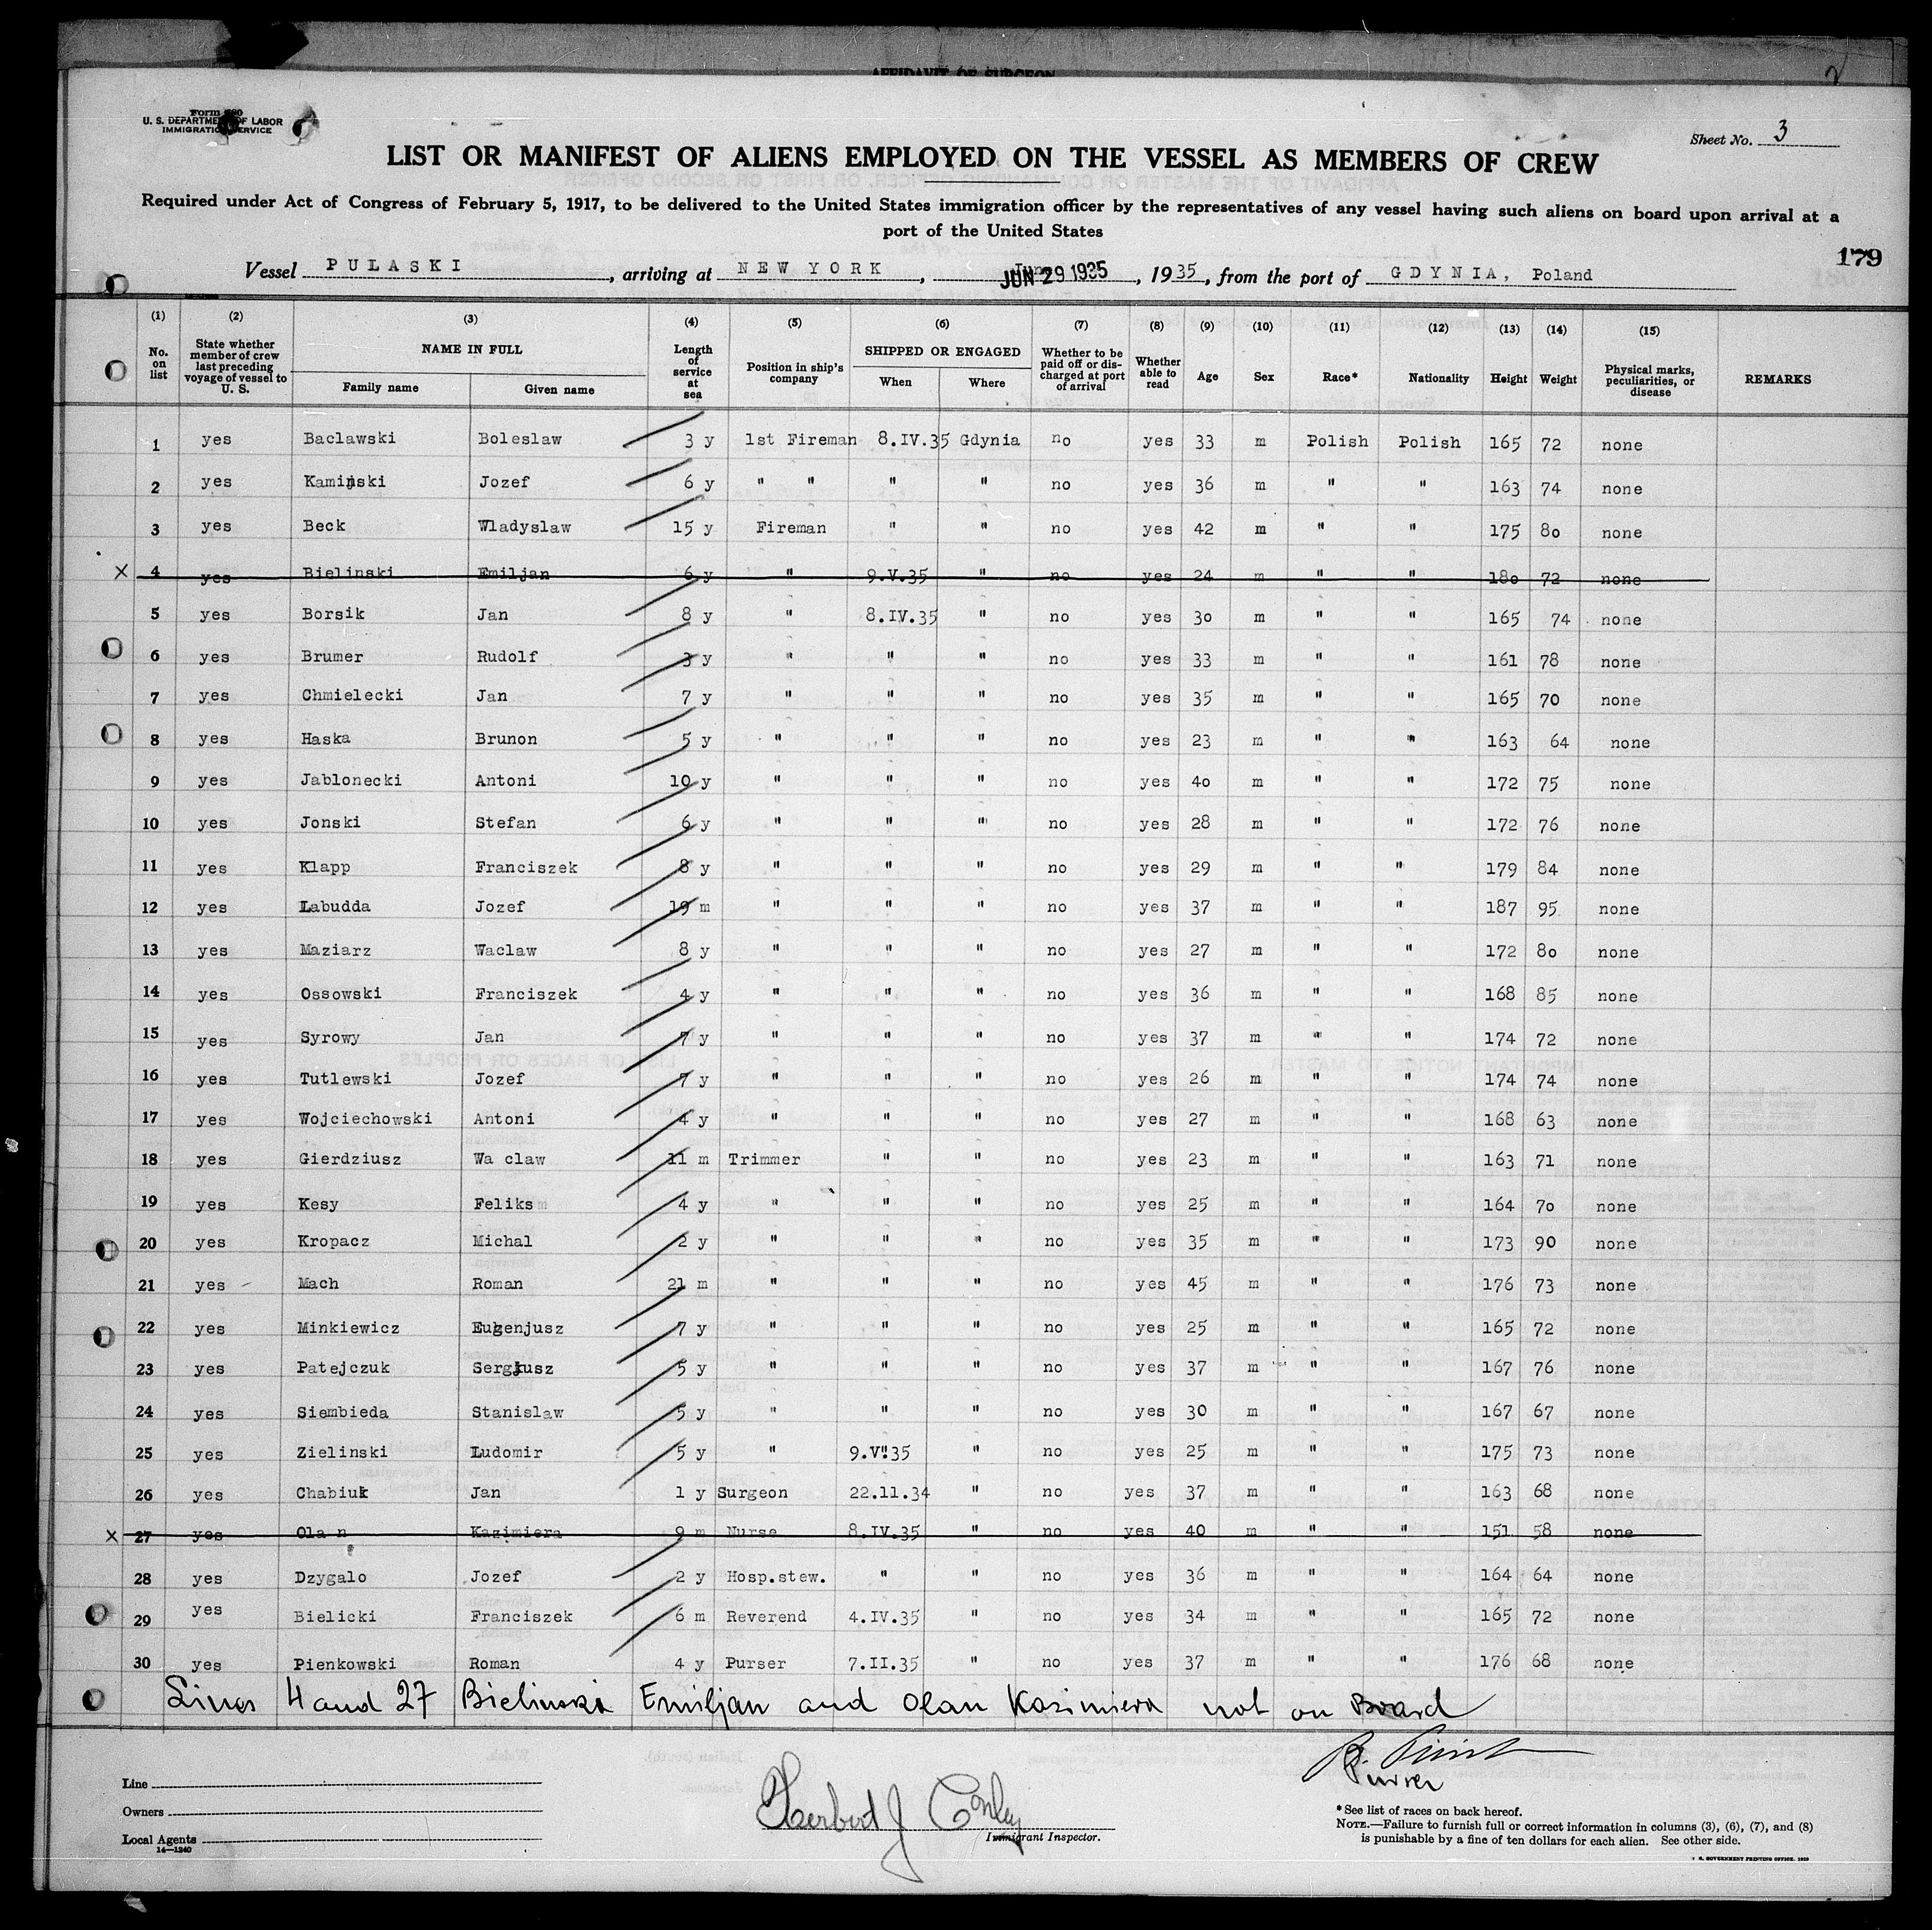 AFFIDAVIT OF SURGEON
2
U. S. DEPARTMENT OF LABOR
IMMIGRATION SERVICE
Sheet No. 3
LIST OR MANIFEST OF ALIENS EMPLOYED ON THE VESSEL AS MEMBERS OF CREW
Required under Act of Congress of February 5, 1917, to be delivered to the United States immigration officer by the representatives of any vessel having such aliens on board upon arrival at a
port of the United States
179
Vessel PULASKI, arriving at NEW YORK, JUN 29 1935, 1935, from the port of GDYNIA, Poland
(1) (2) (3) (4) (5) (6) (7) (8) (9) (10) (11) (12) (13) (14) (15)
No. on list State whether member of crew last preceding voyage of vessel to U. S. NAME IN FULL Family name Given name Length of service at sea Position in ship's company SHIPPED OR ENGAGED When Where Whether to be paid off or discharged at port of arrival Whether able to read Age Sex Race* Nationality Height Weight Physical marks, peculiarities, or disease REMARKS
1 yes Baclawski Boleslaw 3 y 1st Fireman 8.IV.35 Gdynia no yes 33 m Polish Polish 165 72 none
2 yes Kaminski Jozef 6 y " " " " no yes 36 m " " 163 74 none
3 yes Beck Wladyslaw 15 y Fireman " " no yes 42 m " " 175 80 none
X 4 yes Bielinski Emiljan 6 y " 9.V.35 " no yes 24 m " " 180 72 none
5 yes Borsik Jan 8 y " 8.IV.35 " no yes 30 m " " 165 74 none
6 yes Brumer Rudolf 3 y " " " no yes 33 m " " 161 78 none
7 yes Chmielecki Jan 7 y " " " no yes 35 m " " 165 70 none
8 yes Haska Brunon 5 y " " " no yes 23 m " " 163 64 none
9 yes Jablonecki Antoni 10 y " " " no yes 40 m " " 172 75 none
10 yes Jonski Stefan 6 y " " " no yes 28 m " " 172 76 none
11 yes Klapp Franciszek 8 y " " " no yes 29 m " " 179 84 none
12 yes Labudda Jozef 19 m " " " no yes 37 m " " 187 95 none
13 yes Maziarz Waclaw 8 y " " " no yes 27 m " " 172 80 none
14 yes Ossowski Franciszek 4 y " " " no yes 36 m " " 168 85 none
15 yes Syrowy Jan 7 y " " " no yes 37 m " " 174 72 none
16 yes Tutlewski Jozef 7 y " " " no yes 26 m " " 174 74 none
17 yes Wojciechowski Antoni 4 y " " " no yes 27 m " " 168 63 none
18 yes Gierdziusz Wa claw 11 m Trimmer " " no yes 23 m " " 163 71 none
19 yes Kesy Feliks 4 y " " " no yes 25 m " " 164 70 none
20 yes Kropacz Michal 2 y " " " no yes 35 m " " 173 90 none
21 yes Mach Roman 21 m " " " no yes 45 m " " 176 73 none
22 yes Minkiewicz Eugenjusz 7 y " " " no yes 25 m " " 165 72 none
23 yes Patejczuk Sergjusz 5 y " " " no yes 37 m " " 167 76 none
24 yes Siembieda Stanislaw 5 y " " " no yes 30 m " " 167 67 none
25 yes Zielinski Ludomir 5 y " 9.V.35 " no yes 25 m " " 175 73 none
26 yes Chabiuk Jan 1 y Surgeon 22.11.34 " no yes 37 m " " 163 68 none
X 27 yes Ola n Kazimiera 9 m Nurse 8.IV.35 " no yes 40 m " " 151 58 none
28 yes Dzygalo Jozef 2 y Hosp.stew. " " no yes 36 m " " 164 64 none
29 yes Bielicki Franciszek 6 m Reverend 4.IV.35 " no yes 34 m " " 165 72 none
30 yes Pienkowski Roman 4 y Purser 7.II.35 " no yes 37 m " " 176 68 none
Lines 4 and 27 Bielinski Emiljan and Olan Kazimiera not on Board
Purser
Line
Owners
Local Agents
14—1240
Herbert J Conley
Immigrant Inspector.
* See list of races on back hereof.
NOTE.—Failure to furnish full or correct information in columns (3), (6), (7), and (8)
is punishable by a fine of ten dollars for each alien. See other side.
U. S. GOVERNMENT PRINTING OFFICE: 1929